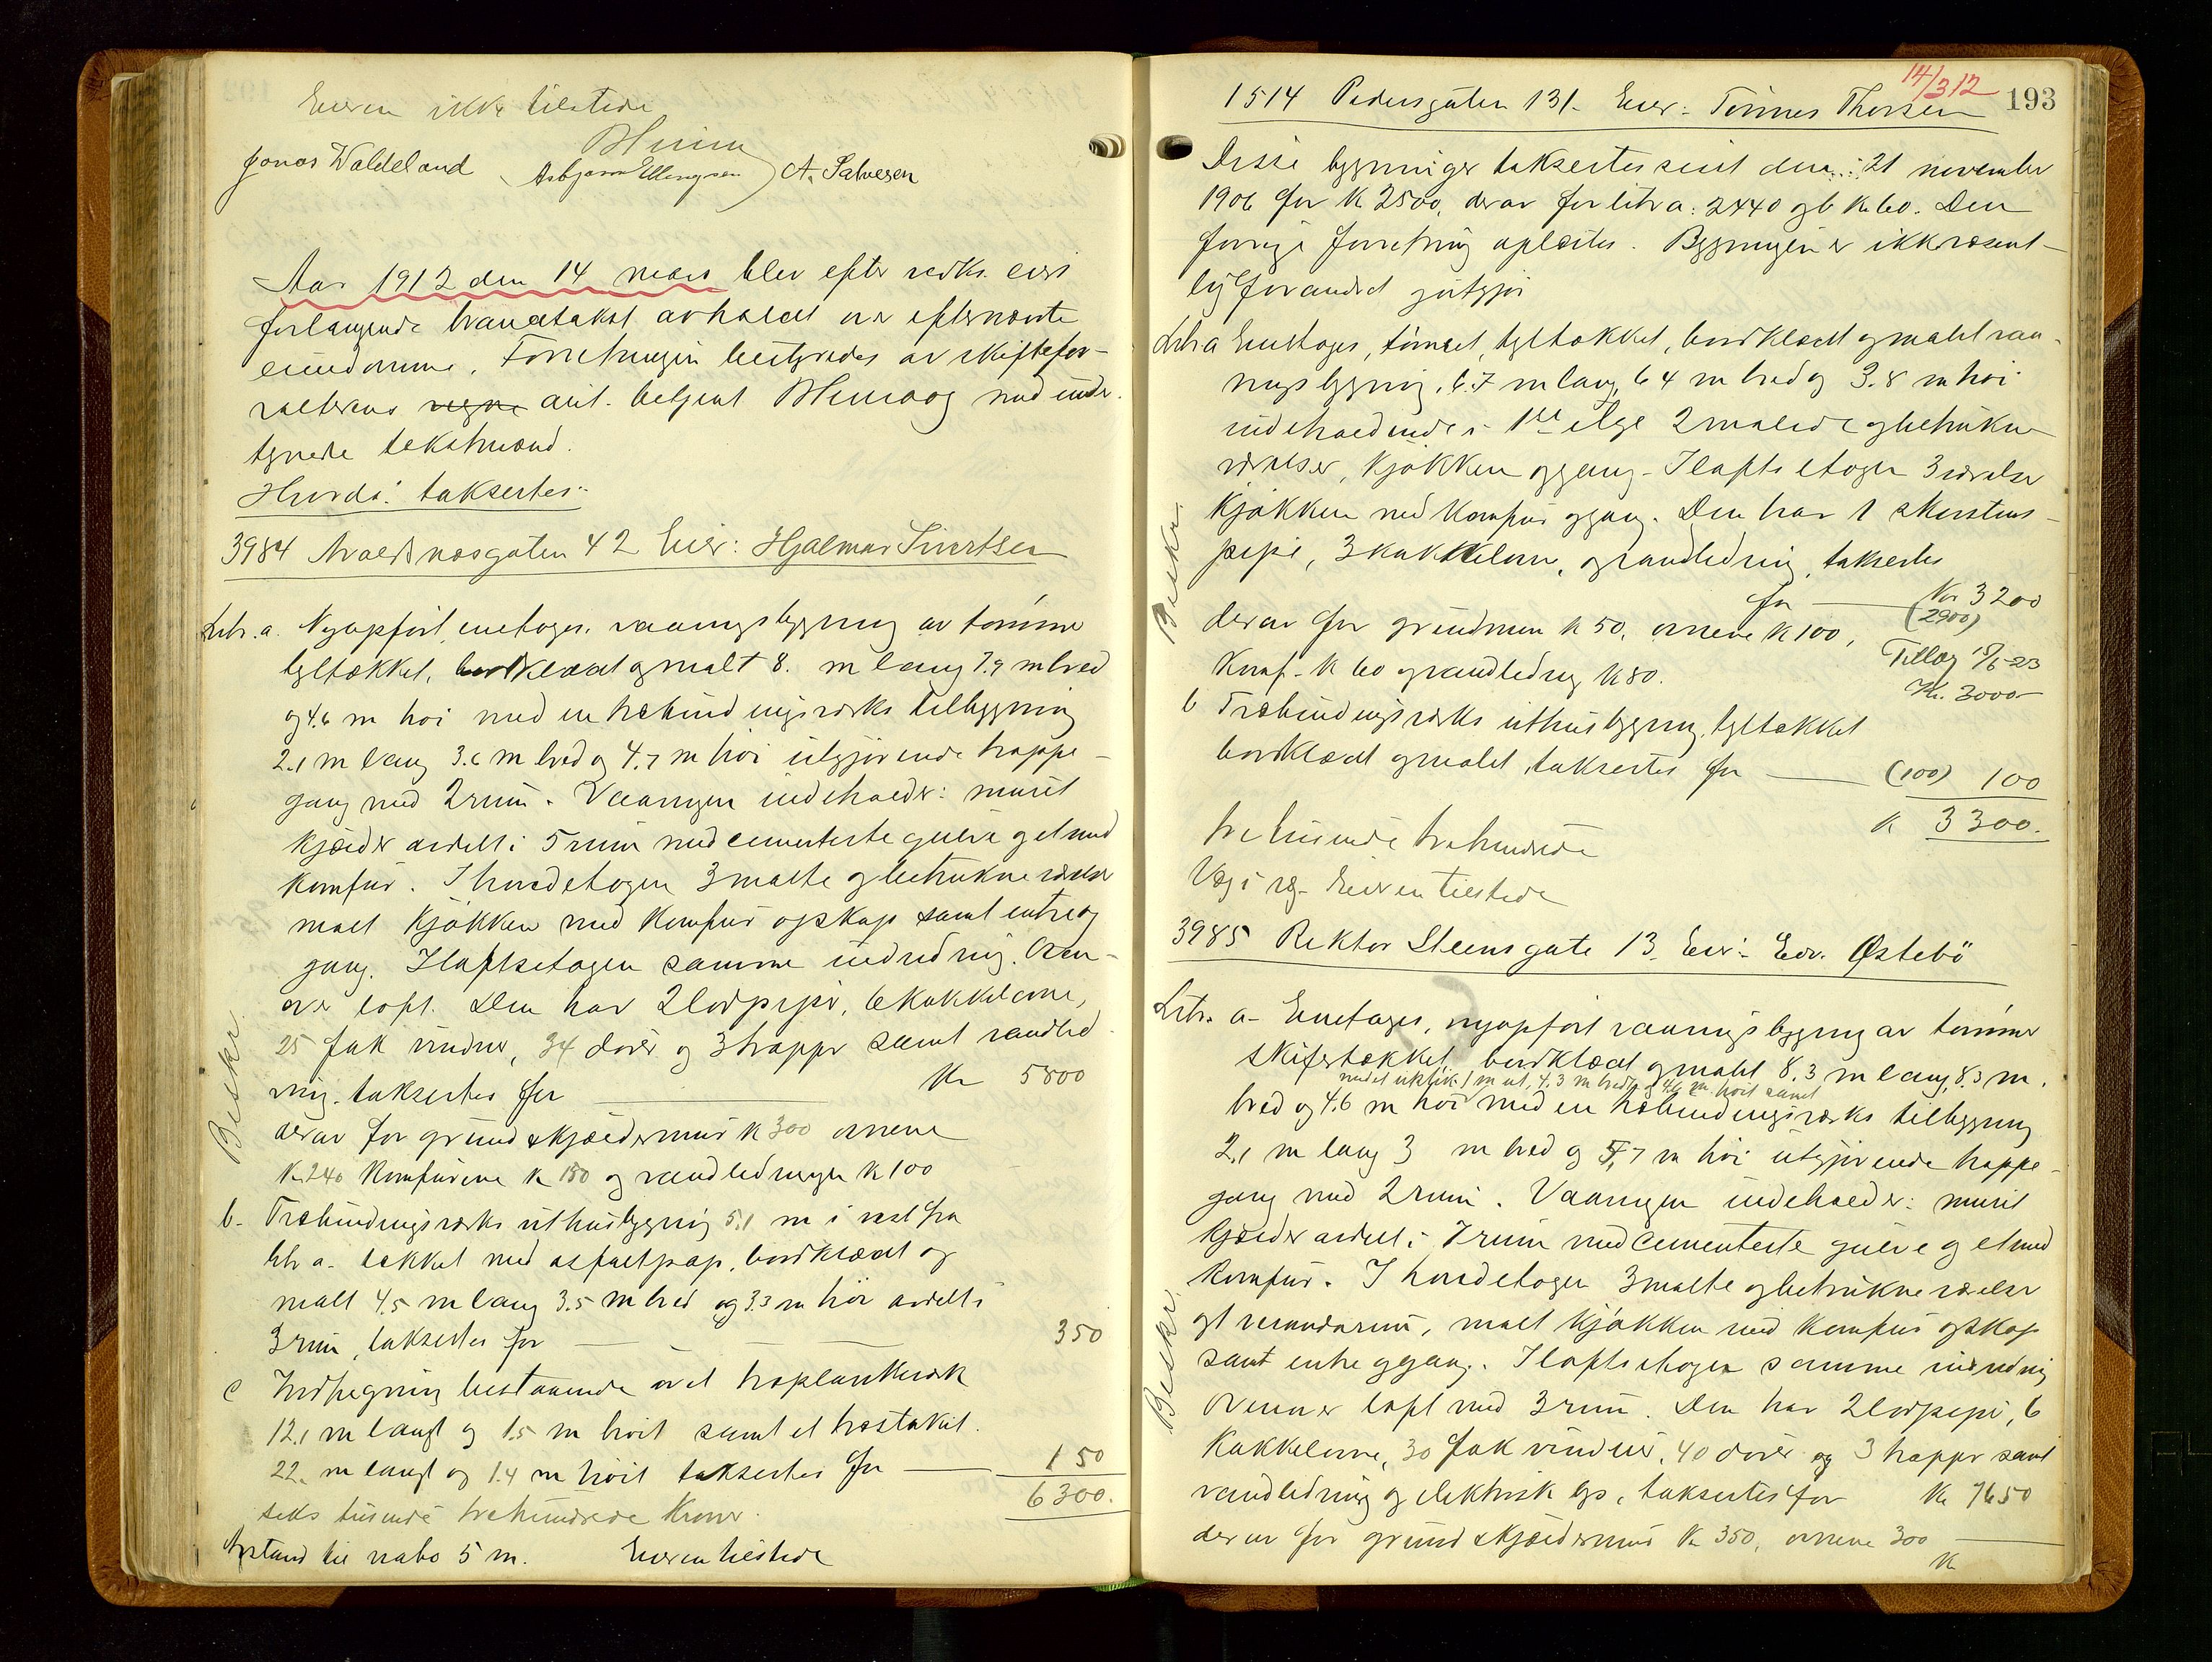 Eieren ikke tilstede
Jonas Waldeland Asbjørn Ellingsen A. Salvesen
Aar 1912 den 14 mars blev efter vedk. eiers
forlangende brandtakst avholdt over efternævnte
eiendomme. Forretningen bestyredes av skiftefor-
valterens aut. betjent med under-
tegnede takstmænd.
Hvorda: taksertes:
3984 Avaldsnæsgaten 42 Eier: Hjalmar Sivertsen
Litr. a. Nyopført, enetages. vaaningsbygning av tømmer
tegltækket, bordklædt og malt 8. m lang 7.9 m bred
og 4.6 m høi med en træbindingsværks tilbygning
2.1 m lang 3.6 m bred og 4.7 m høi utgjørende trappe-
gang med 2 rum. Vaaningen indeholder: muret
kjælder avdelt i 5 rum med cementerte gulve og et med
komfur. I hovedetagen 3 malte og betrukne værelser
malt kjøkken med komfur og skap samt entre og
gang. I loftsetagen samme indredning. Oven-
over loft. Den har 2 lodpiper, 6 kakkelovne,
25 fak vinduer, 34 dører og 3 trapper samt vandled-
ning. taksertes for Kr 5800
Beskr.
derav for grund & kjældermur k 300 ovnene
Kr 240 Komfurene k 180 og vandledningen k 100
b. Træbindingsværks uthusbygning 5.1 m i vest fra
litr a. tækket med asfaltpap, bordklædt og
malt 4.5 m lang 3.5 m bred og 3.3 m høi avdelt i
3 rum, taksertes for 350
c Indhegning bestaaende av et træplankeværk
12.1 m langt og 1.5 m høit samt et træstakit.
22. m langt og 1.4 m høit taksertes for 150
6300.
seks tusinde trehundrede kroner.
Avstand til nabo 5 m. Eieren tilstede
14/3 12
193
1514 Pedersgaten 131. Eier: Tønnes Thorsen
Disse bygninger taksertes sidst den: 21 november
1906 for k 2500, derav for litr a: 2440 og b k 60. Den
forrige forretning oplæstes. Bygningen er ikke væsent-
lig forandret
Litr a Enetages, tømret, tegltækket, bordklædt og malt vaa-
ningsbygning, 6.7 m lang 6.4 m bred og 3.8 m høi
indeholdende i 1ste etge 2 malede og betrukne
værelser, kjøkken og gang. I loftsetagen 3 værelser
kjøkken med komfur og gang. Den har 1 skorstens-
pipe, 3 kakkelovne, og vandledning, taksertes
for Kr 3200
(2900)
Beskr.
derav for grundmur k 50, ovnene k 100,
Komf. k 60 og vandledning k 80.
Tillæg 15/6-23
Kr. 3000-
b Træbindingsværks uthusbygning, tegltækket
bordklædt og malet, taksertes for (100) 100
k 3300.
tre tusinde trehundrede
Eieren tilstede
3985 Rektor Steensgate 13. Eier: Edv. Østebö
Litr. a- Enetages, nyopført vaaningsbygning av tømmer
skifertækket, bordklædt og malt 8.3 m lang, 8.3 m.
med et utstik 1 m ut, 4.3 m bredt og 4.6 m høit samt
bred og 4.6 m høi med en træbindingsværks tilbygning
2.1 m lang 3 m bred og 5.7 m høi utgjørende trappe-
gang med 2 rum. Vaaningen indeholder: muret
kjælder avdelt i 7 rum med cementerte gulve og et med
komfur. I hovedetagen 3 malte og betrukne værelser
et verandarum, malt kjøkken med komfur og skap
samt entre og gang. I loftsetagen samme indredning
Ovenover loft med 3 rum. Den har 2 lodpiper, 6
Kakkelovne, 30 fak vinduer, 40 dører og 3 trapper samt
vandledning og elektrisk lys, taksertes for Kr 7650
Beskr.
derav for grund & kjældermur k 350, ovnene 300
Kr